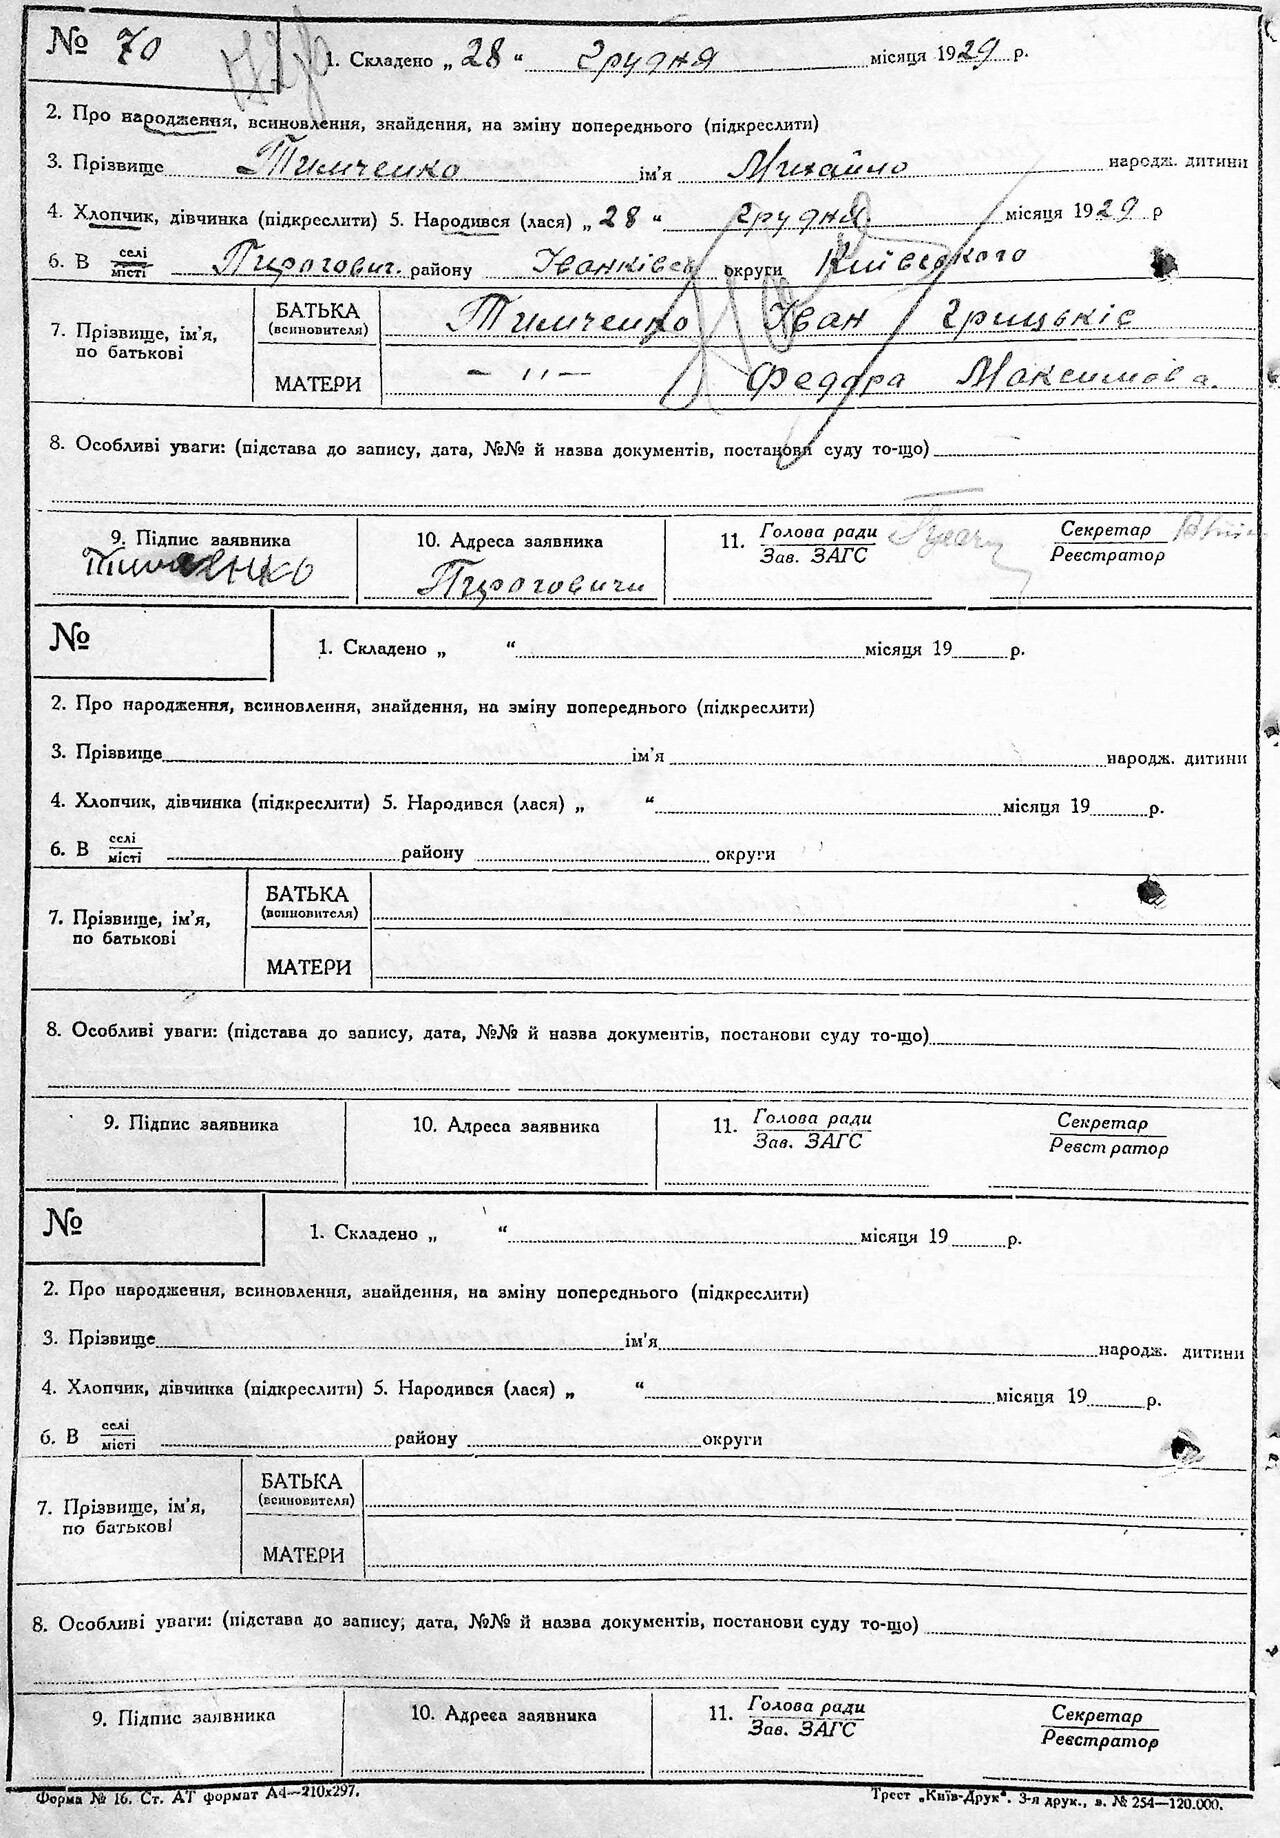 № 70
1. Складено „ 28 “ грудня місяця 1929 р.
2. Про народження, всиновлення, знайдення, на зміну попереднього (підкреслити)
3. Прізвище Тимченко ім'я Михайло народж. дитини
4. Хлопчик, дівчинка (підкреслити) 5. Народився (лася) „ 28 “ грудня місяця 1929 р
6. В селі/місті Пирогович. району Іванківськ округи Київського
7. Прізвище, ім'я, по батькові
БАТЬКА (всиновителя) Тимченко Іван Грицькіс
МАТЕРИ – " – Федора Максимова.
8. Особливі уваги: (підстава до запису, дата, №№ й назва документів, постанови суду то-що)
9. Підпис заявника 10. Адреса заявника 11. Голова ради/Зав. ЗАГС Секретар/Реєстратор
Тимченко Пироговичи
№
1. Складено „ “ місяця 19 р.
2. Про народження, всиновлення, знайдення, на зміну попереднього (підкреслити)
3. Прізвище ім'я народж. дитини
4. Хлопчик, дівчинка (підкреслити) 5. Народився (лася) „ “ місяця 19 р.
6. В селі/місті району округи
7. Прізвище, ім'я, по батькові
БАТЬКА (всиновителя)
МАТЕРИ
8. Особливі уваги: (підстава до запису, дата, №№ й назва документів, постанови суду то-що)
9. Підпис заявника 10. Адреса заявника 11. Голова ради/Зав. ЗАГС Секретар/Реєстратор
№
1. Складено „ “ місяця 19 р.
2. Про народження, всиновлення, знайдення, на зміну попереднього (підкреслити)
3. Прізвище ім'я народж. дитини
4. Хлопчик, дівчинка (підкреслити) 5. Народився (лася) „ “ місяця 19 р.
6. В селі/місті району округи
7. Прізвище, ім'я, по батькові
БАТЬКА (всиновителя)
МАТЕРИ
8. Особливі уваги: (підстава до запису, дата, №№ й назва документів, постанови суду то-що)
9. Підпис заявника 10. Адреса заявника 11. Голова ради/Зав. ЗАГС Секретар/Реєстратор
Форма № 16. Ст. АТ формат А4—210х297. Трест „Київ-Друк“. 3-я друк., з. № 254—120.000.